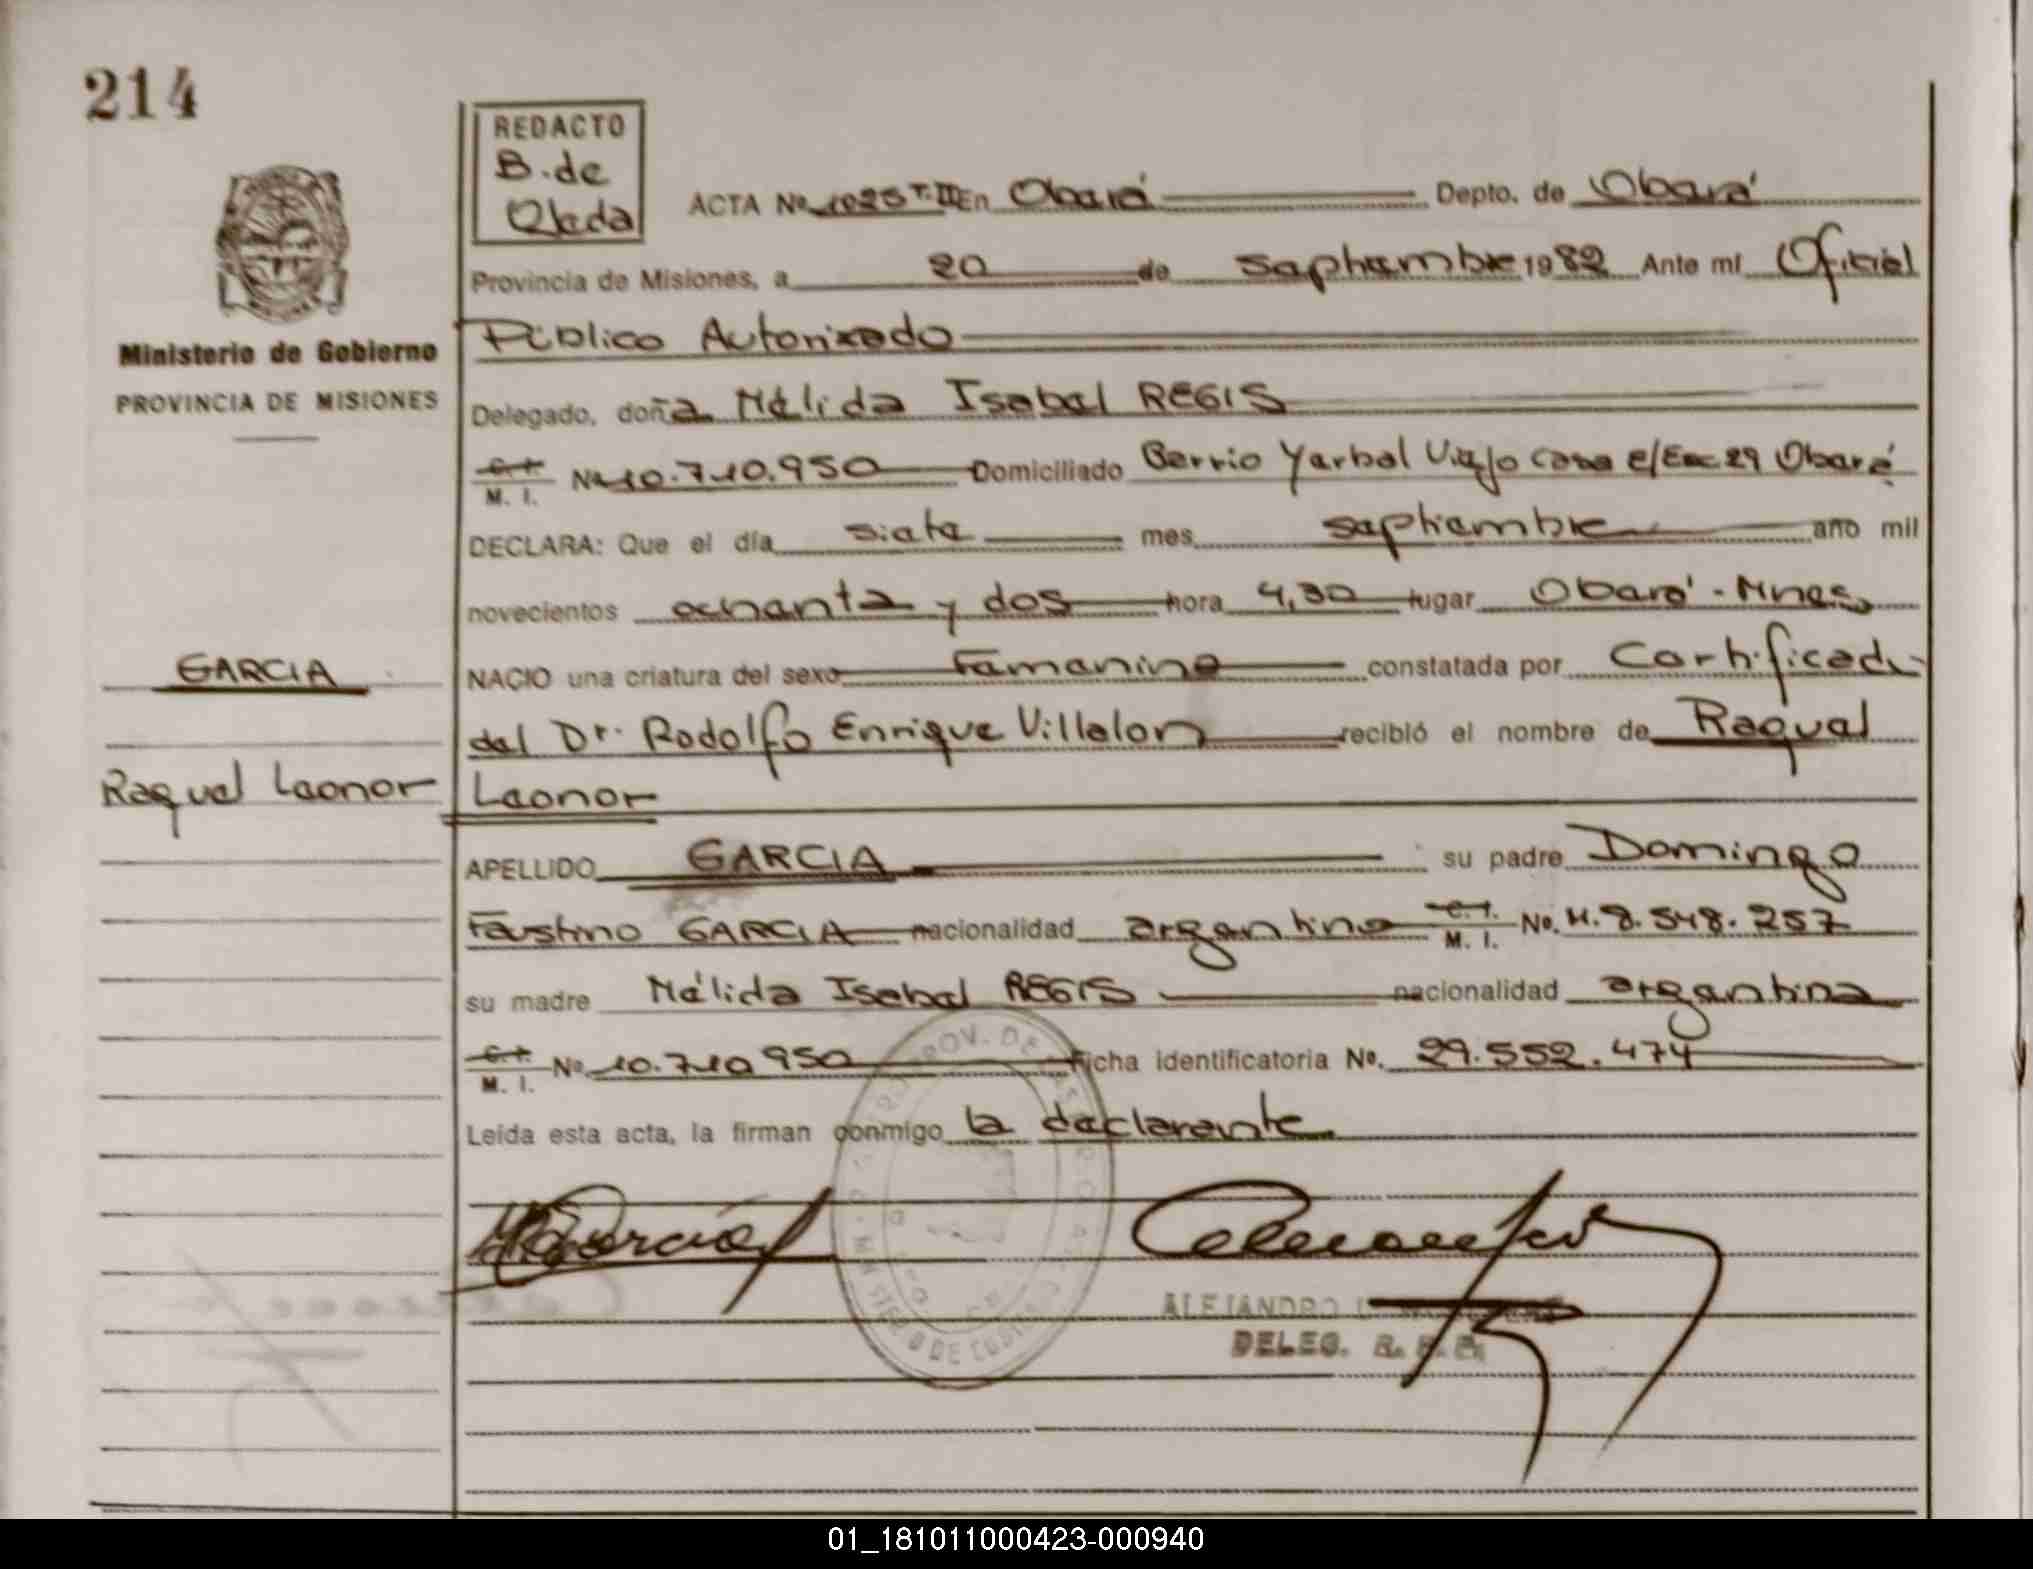 214
REDACTO
B. de
Oleda
ACTA No 1025 T. II En Oberá Depto. de Oberá
Provincia de Misiones, a 20 de septiembre 1982 Ante mí Oficial
Público Autorizado
Ministerio de Gobierno
PROVINCIA DE MISIONES
Delegado, doña Nélida Isabel REGIS
C. I.
M. I. No 10.710.950 Domiciliado Barrio Yerbal Viejo casa e/Esc 29 Oberá
DECLARA: Que el día siete mes septiembre año mil
novecientos ochenta y dos hora 4,30 lugar Oberá - Mnes.
GARCIA
NACIO una criatura del sexo Femenino constatada por Certificado
del Dr. Rodolfo Enrique Villalon recibió el nombre de Raquel
Raquel Leonor
Leonor
APELLIDO GARCIA su padre Domingo
Faustino GARCIA nacionalidad argentino C. I.
M. I. No. M. 8.548.257
su madre Nélida Isabel REGIS nacionalidad argentina
C. I.
M. I. No. 10.710.950 Ficha identificatoria No. 29.552.474
Leída esta acta, la firman conmigo la declarente
ALEJANDRO
DELEG. R.
01_181011000423-000940